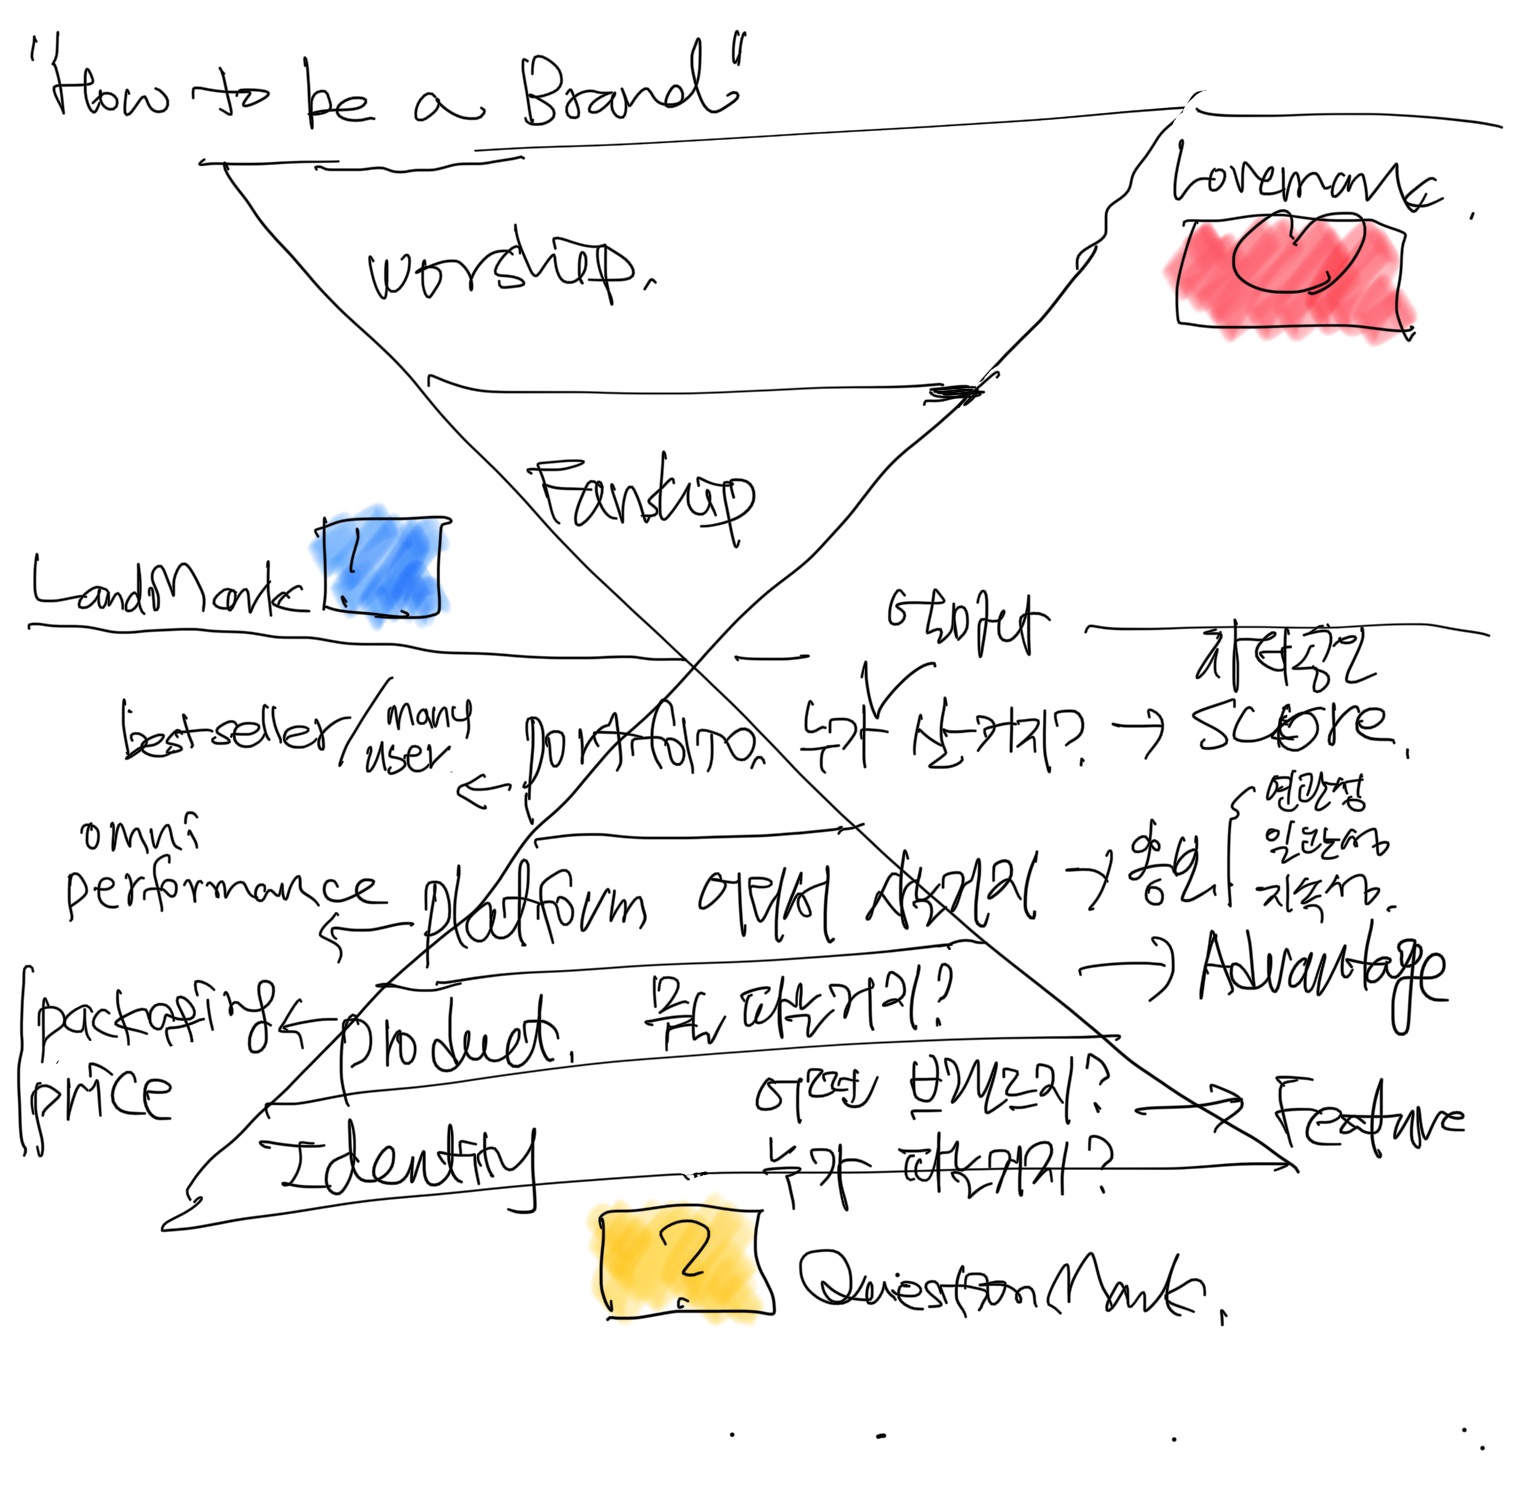 "How to be a Brand"
Lovemark.
worship.
Fanship
LandMark !
자타공인
bestseller/many user
portfolio. 누가 산거지? → score.
omni performance
← platform 어디서 사는거지 → 홍보
연관성
일관성
지속성.
→ Advantage
packaging
price
← product. 뭘 파는거지?
Identity
어떤 브랜드지? → Feature
누가 파는거지?
? Question Mark.